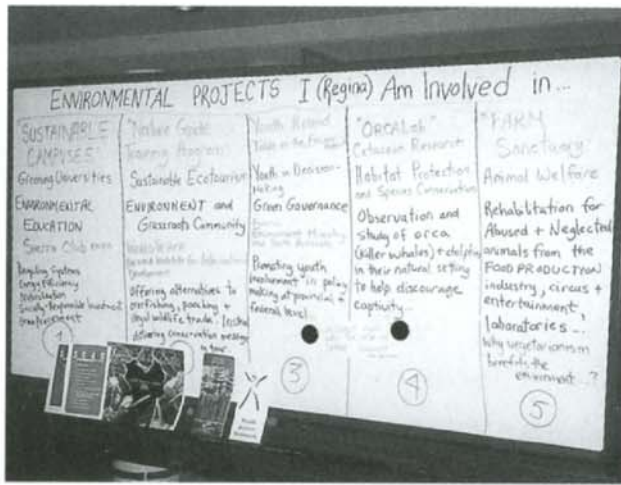 ENVIRONMENTAL PROJECTS I (Regina) Am Involved in...
"SUSTAINABLE
CAMPUSES"
Greening Universities
ENVIRONMENTAL
EDUCATION
Sierra Club
Recycling Systems
Energy Efficiency
Socially Responsible Investment
1
"Nature Guide
Training Program"
Sustainable Ecotourism
ENVIRONMENT and
Grassroots Community
Offering alternatives to
overfishing, poaching +
illegal wildlife trade.
delivering conservation message
in tour.
Youth Round
Table on the
Youth in Decision-
Making
Green Governance
Environment Ministry
Promoting youth
involvement in policy
making at provincial +
federal level...
3
"ORCALab"
Cetacean Research
Habitat Protection
and Species Conservation
Observation and
study of orca
(killer whales) + dolphins
in their natural setting
to help discourage
captivity...
4
"FARM
Sanctuary"
Animal Welfare
Rehabilitation for
Abused + Neglected
animals from the
FOOD PRODUCTION
industry, circus +
entertainment,
laboratories...
Why vegetarianism
benefits the
environment...?
5